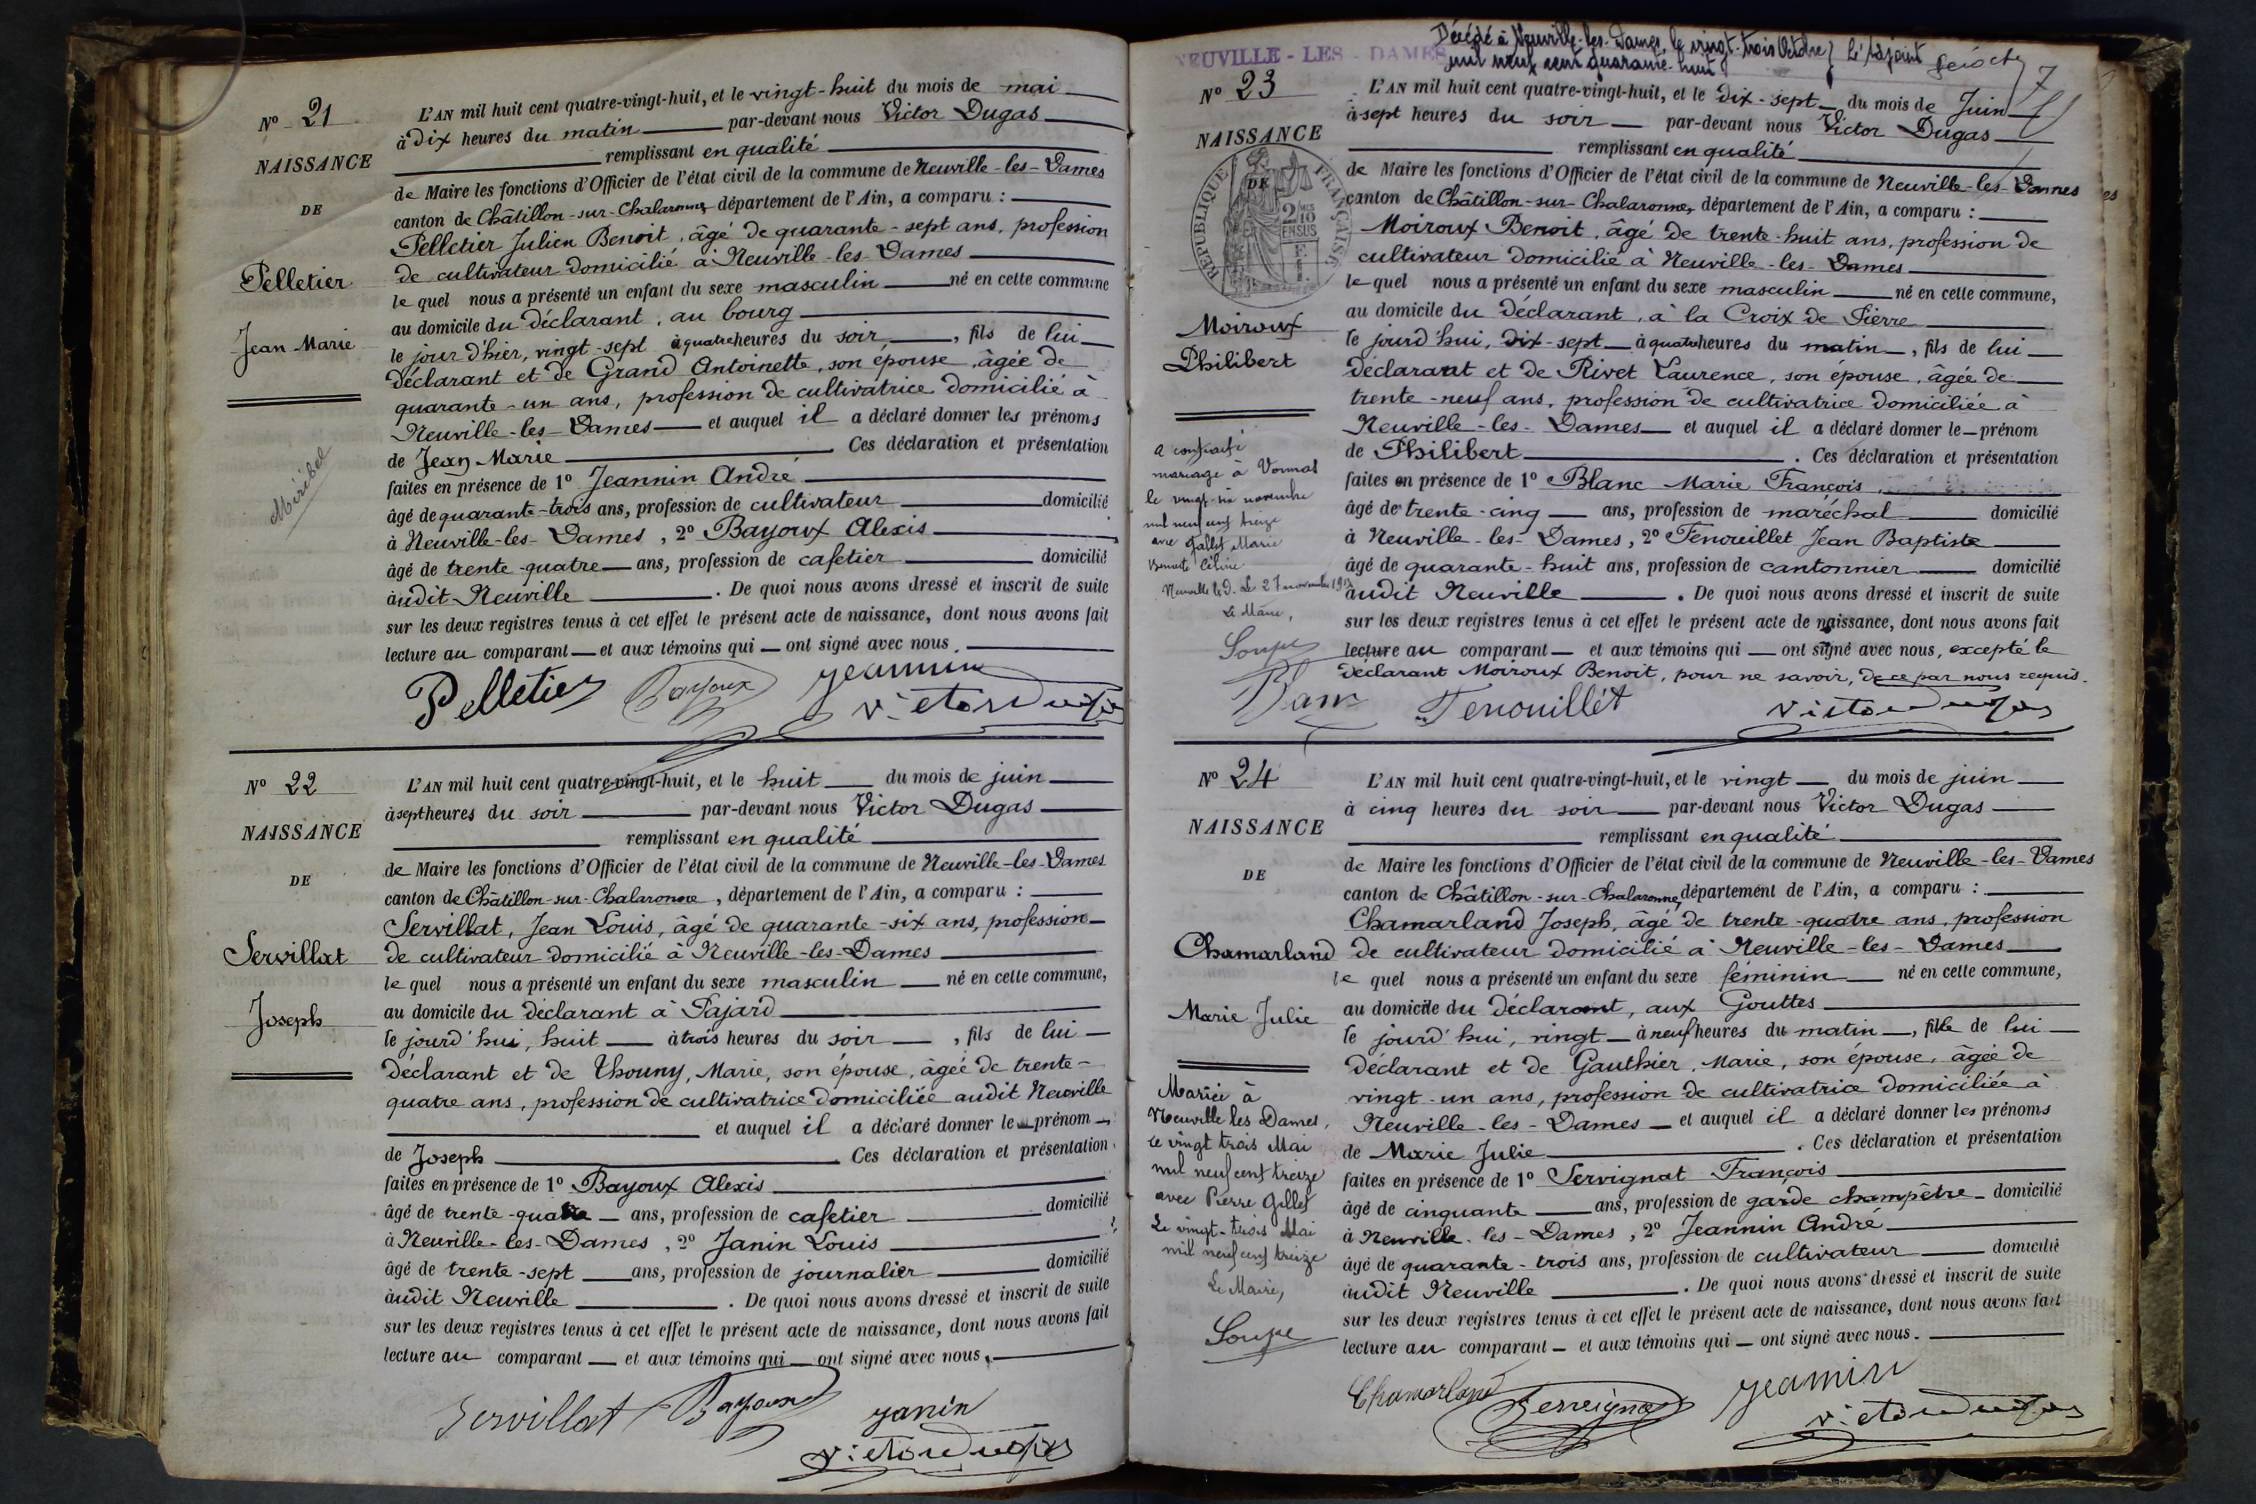 Nº 21
NAISSANCE
DE
Pelletier
Jean Marie
Miribel
L'AN mil huit cent quatre-vingt-huit, et le vingt-huit du mois de mai
à dix heures du matin par-devant nous Victor Dugas
remplissant en qualité
de Maire les fonctions d'Officier de l'état civil de la commune de Neuville-les-Dames
canton de Châtillon-sur-Chalaronne, département de l'Ain, a comparu :
Pelletier Julien Benoit, âgé de quarante-sept ans, profession
de cultivateur domicilié à Neuville-les-Dames
le quel nous a présenté un enfant du sexe masculin né en cette commune
au domicile du déclarant, au bourg
le jour d'hier, vingt-sept à quatre heures du soir, fils de lui
déclarant et de Grand Antoinette, son épouse, âgée de
quarante-un ans, profession de cultivatrice domicilié à
Neuville-les-Dames et auquel il a déclaré donner les prénoms
de Jean Marie Ces déclaration et présentation
faites en présence de 1º Jeannin André
âgé de quarante-trois ans, profession de cultivateur domicilié
à Neuville-les-Dames, 2º Bayoux Alexis
âgé de trente-quatre ans, profession de cafetier domicilié
audit Neuville. De quoi nous avons dressé et inscrit de suite
sur les deux registres tenus à cet effet le présent acte de naissance, dont nous avons fait
lecture au comparant et aux témoins qui ont signé avec nous.
Pelletier Bayoux Jeannin
Victor Dugas
Nº 22
NAISSANCE
DE
Servillat
Joseph
L'AN mil huit cent quatre-vingt-huit, et le huit du mois de juin
à sept heures du soir par-devant nous Victor Dugas
remplissant en qualité
de Maire les fonctions d'Officier de l'état civil de la commune de Neuville-les-Dames
canton de Châtillon-sur-Chalaronne, département de l'Ain, a comparu :
Servillat, Jean Louis, âgé de quarante-six ans, profession
de cultivateur domicilié à Neuville-les-Dames
le quel nous a présenté un enfant du sexe masculin né en cette commune,
au domicile du déclarant à Pajard
le jourd'hui, huit à trois heures du soir, fils de lui
déclarant et de Thouny, Marie, son épouse, âgée de trente-
quatre ans, profession de cultivatrice domiciliée audit Neuville
et auquel il a déclaré donner le prénom
de Joseph Ces déclaration et présentation
faites en présence de 1º Bayoux Alexis
âgé de trente-quatre ans, profession de cafetier domicilié
à Neuville-les-Dames, 2º Janin Louis
âgé de trente-sept ans, profession de journalier domicilié
audit Neuville. De quoi nous avons dressé et inscrit de suite
sur les deux registres tenus à cet effet le présent acte de naissance, dont nous avons fait
lecture au comparant et aux témoins qui ont signé avec nous.
Servillat Bayoux Janin
Victor Dugas
Décédé à Neuville-les-Dames, le vingt-trois Octobre L'Adjoint
mil neuf cent quarante-huit
NEUVILLE-LES-DAMES
7
Nº 23
NAISSANCE
DE
RÉPUBLIQUE FRANÇAISE
2/10
EN SUS
Moiroux
Philibert
a contracté
mariage à Vonnas
le vingt-six novembre
mil neuf cent treize
avec Gallet Marie
Benoite Céline
Neuville les D. Le 27 novembre 1913
Le Maire,
Soupe
L'AN mil huit cent quatre-vingt-huit, et le dix-sept du mois de Juin
à sept heures du soir par-devant nous Victor Dugas
remplissant en qualité
de Maire les fonctions d'Officier de l'état civil de la commune de Neuville-les-Dames
canton de Châtillon-sur-Chalaronne, département de l'Ain, a comparu :
Moiroux Benoit, âgé de trente-huit ans, profession de
cultivateur domicilié à Neuville-les-Dames
le quel nous a présenté un enfant du sexe masculin né en cette commune,
au domicile du déclarant, à la Croix de Pierre
le jourd'hui, dix-sept à quatre heures du matin, fils de lui
déclarant et de Rivet Laurence, son épouse, âgée de
trente-neuf ans, profession de cultivatrice domiciliée à
Neuville-les-Dames et auquel il a déclaré donner le prénom
de Philibert. Ces déclaration et présentation
faites en présence de 1º Blanc Marie François
âgé de trente-cinq ans, profession de maréchal domicilié
à Neuville-les-Dames, 2º Fenouillet Jean Baptiste
âgé de quarante-huit ans, profession de cantonnier domicilié
audit Neuville. De quoi nous avons dressé et inscrit de suite
sur les deux registres tenus à cet effet le présent acte de naissance, dont nous avons fait
lecture au comparant et aux témoins qui ont signé avec nous, excepté le
déclarant Moiroux Benoit, pour ne savoir, de ce par nous requis.
Blanc Fenouillét Victor Dugas
Nº 24
NAISSANCE
DE
Chamarland
Marie Julie
Mariée à
Neuville les Dames,
le vingt trois Mai
mil neuf cent treize
avec Pierre Gillet
Le vingt-trois Mai
mil neuf cent treize
Le Maire,
Soupe
L'AN mil huit cent quatre-vingt-huit, et le vingt du mois de juin
à cinq heures du soir par-devant nous Victor Dugas
remplissant en qualité
de Maire les fonctions d'Officier de l'état civil de la commune de Neuville-les-Dames
canton de Châtillon-sur-Chalaronne, département de l'Ain, a comparu :
Chamarland Joseph, âgé de trente-quatre ans, profession
de cultivateur domicilié à Neuville-les-Dames
le quel nous a présenté un enfant du sexe féminin né en cette commune,
au domicile du déclarant, aux Gouttes
le jourd'hui, vingt à neuf heures du matin, fille de lui
déclarant et de Gauthier, Marie, son épouse, âgée de
vingt-un ans, profession de cultivatrice domiciliée à
Neuville-les-Dames et auquel il a déclaré donner les prénoms
de Marie Julie. Ces déclaration et présentation
faites en présence de 1º Servignat François
âgé de cinquante ans, profession de garde champêtre domicilié
à Neuville-les-Dames, 2º Jeannin André
âgé de quarante-trois ans, profession de cultivateur domicilié
audit Neuville. De quoi nous avons dressé et inscrit de suite
sur les deux registres tenus à cet effet le présent acte de naissance, dont nous avons fait
lecture au comparant et aux témoins qui ont signé avec nous.
Chamarland Servignat Jeannin
Victor Dugas